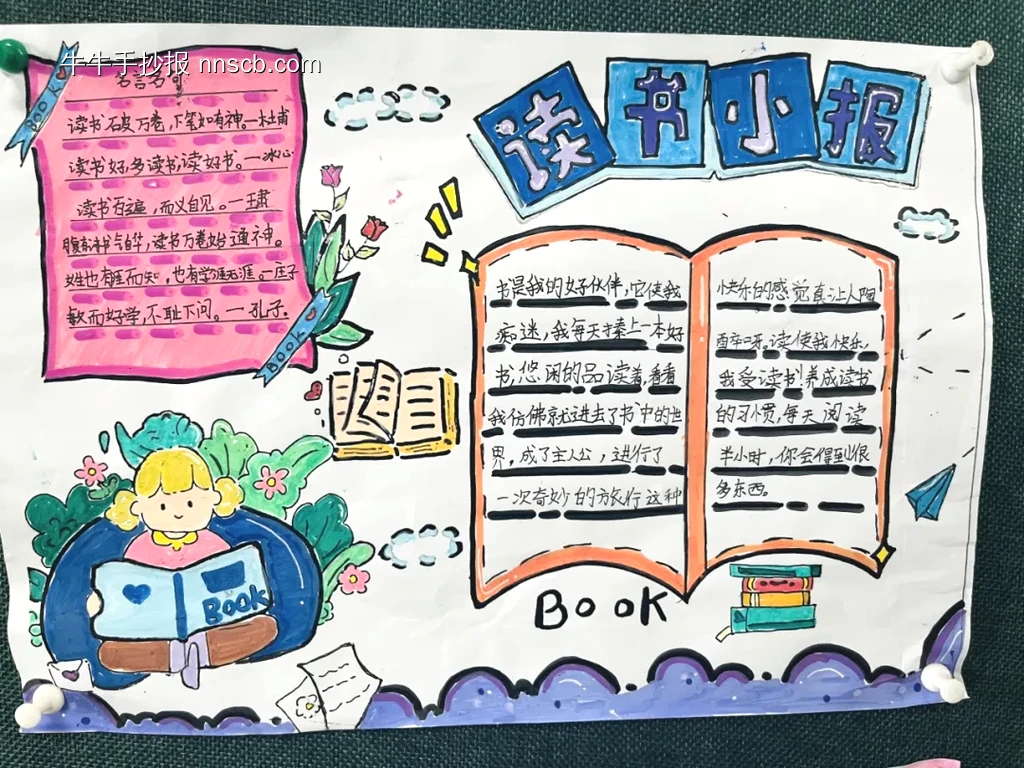 牛牛手抄报 nnscb.com
读书小报
BOOK
名言名句
读书破万卷,下笔如有神。—杜甫
读书好,多读书,读好书。—冰心
读书百遍,而义自见。—王肃
腹有诗书气自华,读书万卷始通神。
吾生也有涯而知,也有学涯无涯。—庄子
敏而好学,不耻下问。—孔子.
BOOK
书是我的好伙伴,它使我
痴迷,我每天捧上一本好
书,悠闲的品读着,看着
我仿佛就进去了书中的世
界,成了主人公,进行了
一次奇妙的旅行这种
快乐的感觉真让人陶
醉呀.读使我快乐,
我爱读书!养成读书
的习惯,每天阅读
半小时,你会得到很
多东西。
BOOK
BOOK